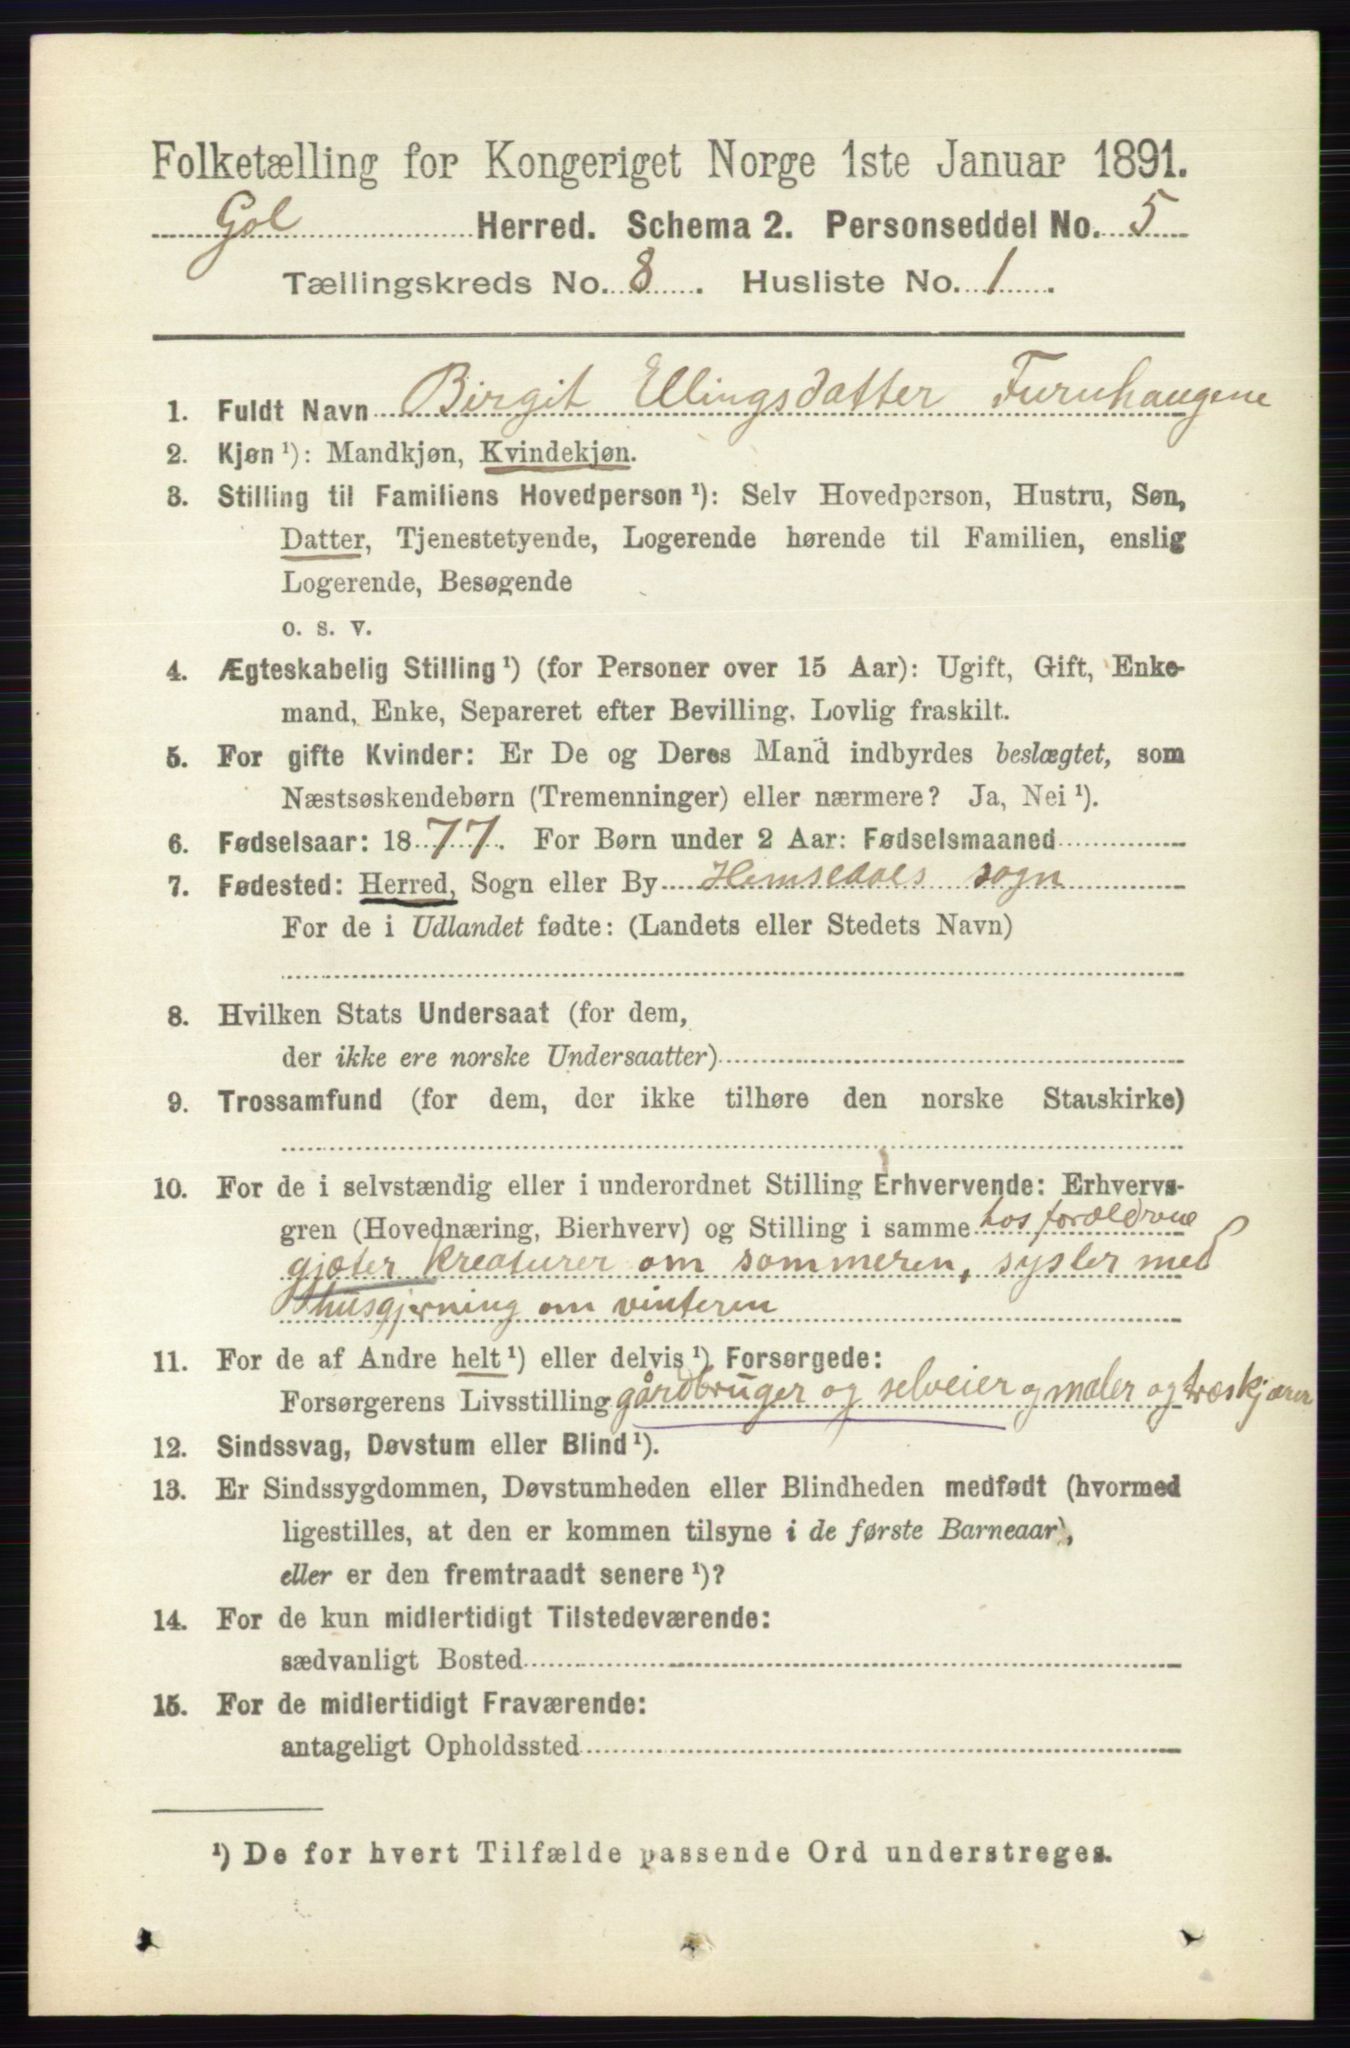 Folketælling for Kongeriget Norge 1ste Januar 1891.
Gol Herred. Schema 2. Personseddel No. 5
Tællingskreds No. 8. Husliste No. 1.
1. Fuldt Navn Birgit Ellingsdatter Furuhaugene
2. Kjøn ¹): Mandkjøn, Kvindekjøn.
3. Stilling til Familiens Hovedperson ¹): Selv Hovedperson, Hustru, Søn,
Datter, Tjenestetyende, Logerende hørende til Familien, enslig
Logerende, Besøgende
o. s. v.
4. Ægteskabelig Stilling ¹) (for Personer over 15 Aar): Ugift, Gift, Enke-
mand, Enke, Separeret efter Bevilling. Lovlig fraskilt.
5. For gifte Kvinder: Er De og Deres Mand indbyrdes beslægtet, som
Næstsøskendebørn (Tremenninger) eller nærmere? Ja, Nei ¹).
6. Fødselsaar: 1877. For Børn under 2 Aar: Fødselsmaaned
7. Fødested: Herred, Sogn eller By Hemsedals sogn
For de i Udlandet fødte: (Landets eller Stedets Navn)
8. Hvilken Stats Undersaat (for dem,
der ikke ere norske Undersaatter)
9. Trossamfund (for dem, der ikke tilhøre den norske Statskirke)
10. For de i selvstændig eller i underordnet Stilling Erhvervende: Erhvervs-
gren (Hovednæring, Bierhverv) og Stilling i samme hos forældrene
gjæter kreaturer om sommeren, sysler med
husgjerning om vinteren
11. For de af Andre helt ¹) eller delvis ¹) Forsørgede:
Forsørgerens Livsstilling gårdbruger og selveier og maler og træskjærer
12. Sindssvag, Døvstum eller Blind ¹).
13. Er Sindssygdommen, Døvstumheden eller Blindheden medfødt (hvormed
ligestilles, at den er kommen tilsyne i de første Barneaar),
eller er den fremtraadt senere ¹)?
14. For de kun midlertidigt Tilstedeværende:
sædvanligt Bosted
15. For de midlertidigt Fraværende:
antageligt Opholdssted
¹) De for hvert Tilfælde passende Ord understreges.